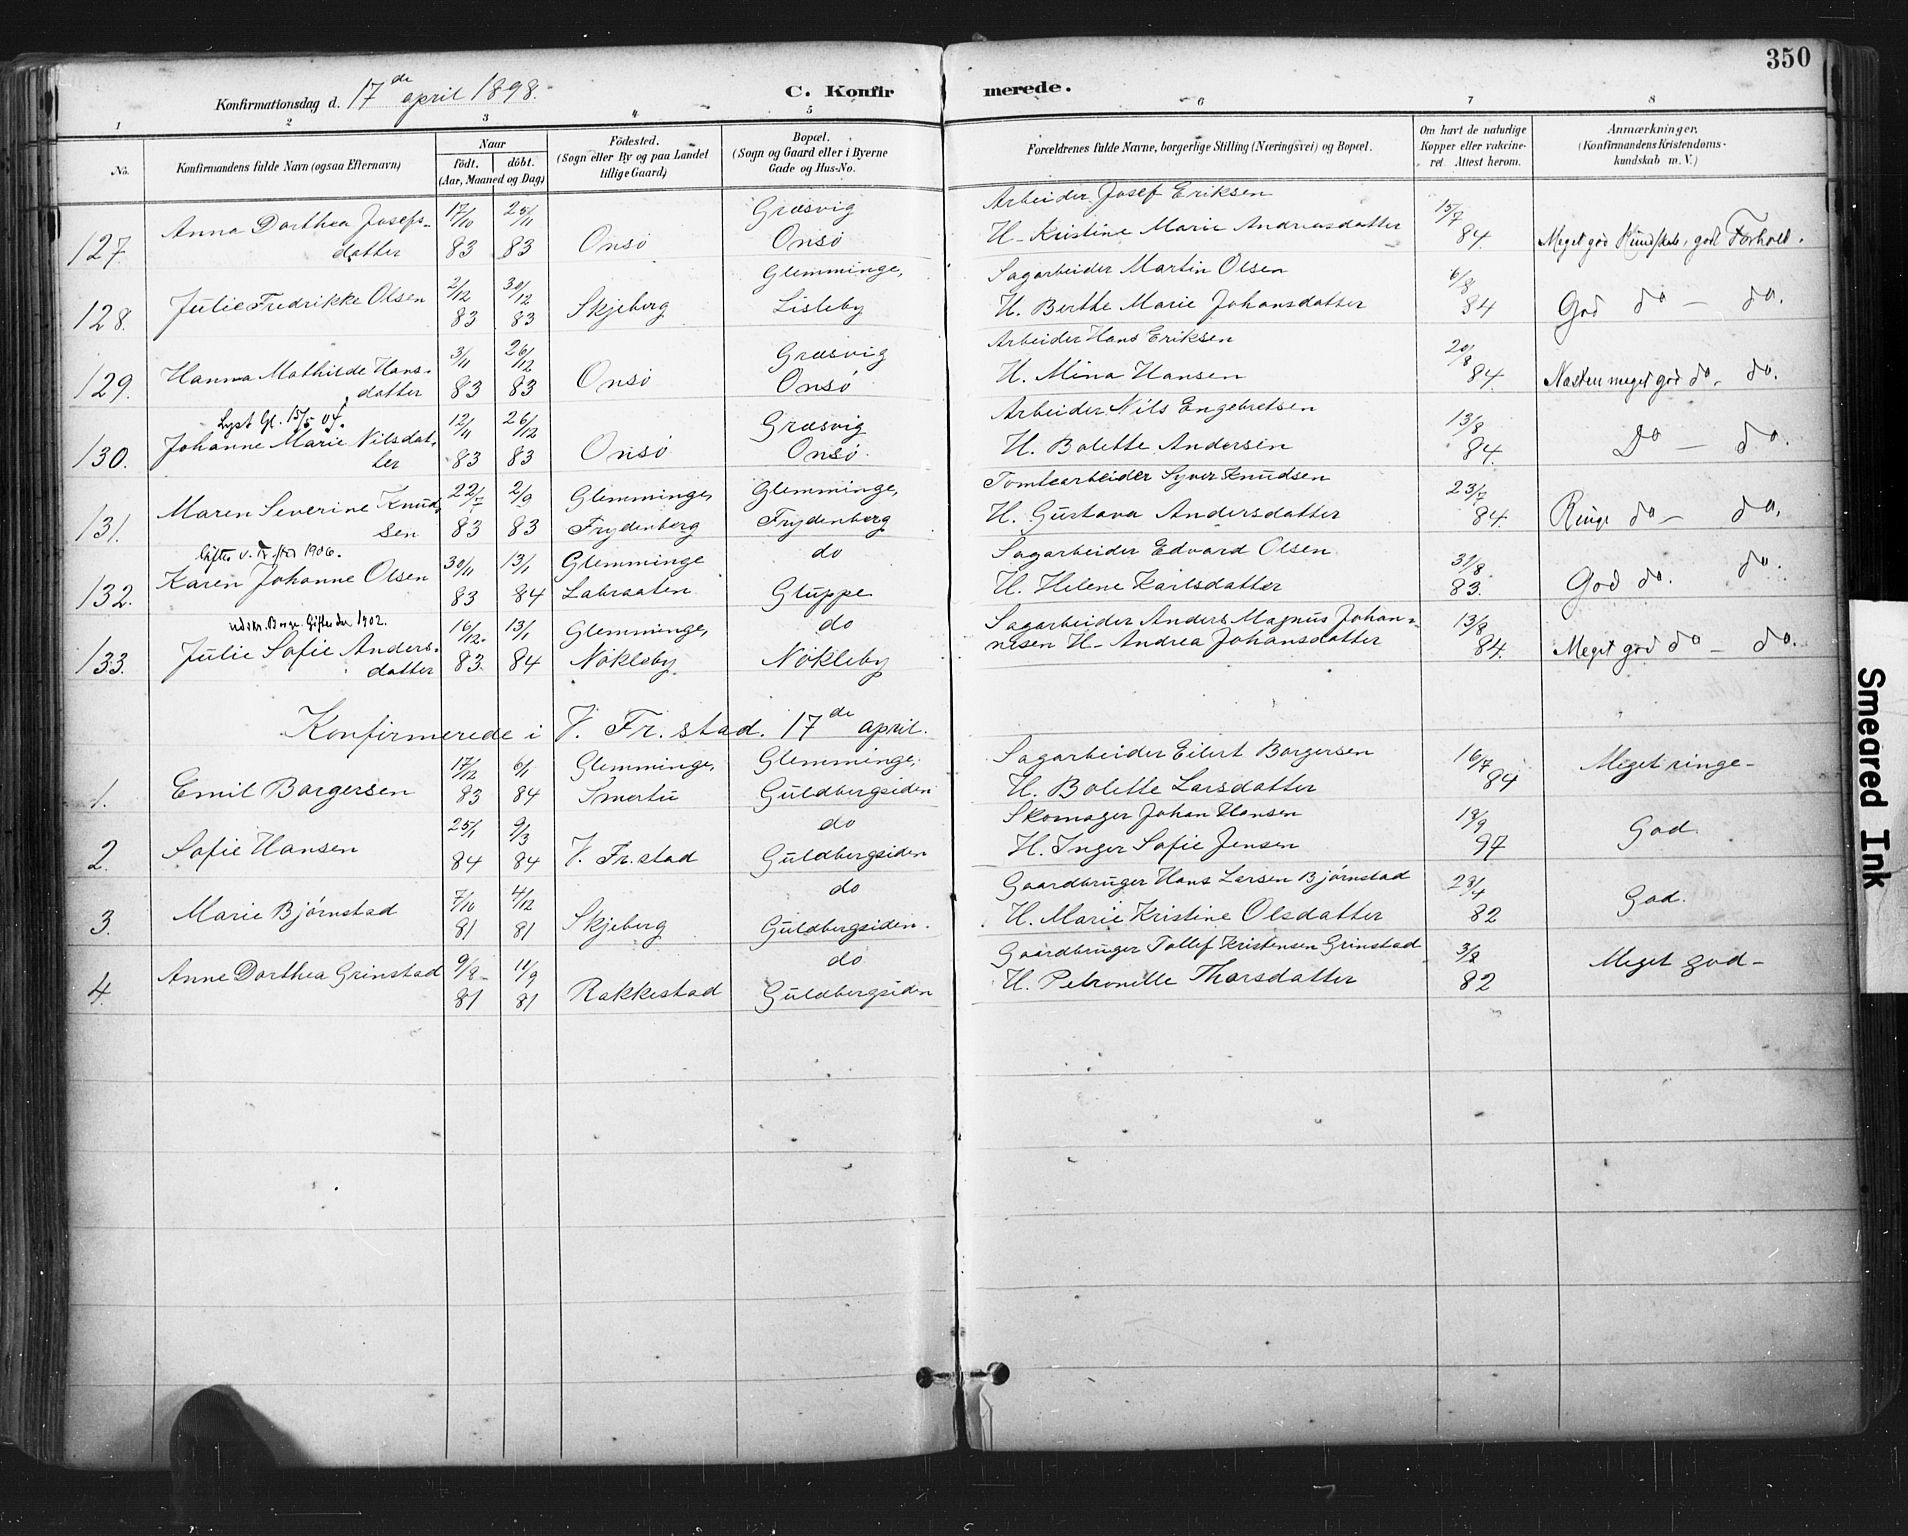 350
Konfirmationsdag d. 17de april 1898.
C. Konfirmerede.
1 2 3 4 5 6 7 8
No.
Konfirmandens fulde Navn (ogsaa Efternavn)
Naar
födt. döbt.
(Aar, Maaned og Dag)
Födested.
(Sogn eller By og paa Landet
tillige Gaard)
Bopæl.
(Sogn og Gaard eller i Byerne
Gade og Hus-No.
Forældrenes fulde Navne, borgerlige Stilling (Næringsvei) og Bopæl.
Om havt de naturlige
Kopper eller vakcine-
ret. Attest herom.
Anmærkninger.
(Konfirmandens Kristendoms-
kundskab m. V.)
Anna Dorthea Josefs- 17/10 25/11 Græsvig Arbeider Josef Eriksen 15/7
127. datter 83 83 Onsö Onsö H. Kristine Marie Andreasdatter 84. Meget god Kundskab, godt Forhold.
2/12 30/12 Glemminge, Sagarbeider Martin Olsen 6/8
128. Julie Fredrikke Olsen 83 83 Skjeberg Lisleby H. Berthe Marie Johansdatter 84 God do — do.
Hanna Mathilde Hans- 3/11 26/12 Græsvig Arbeider Hans Eriksen 20/8
129. datter 83 83 Onsö Onsö H. Mina Hansen 84. Næsten meget god do. do.
Lyst Gl. 15/5 04.
Johanne Marie Nilsdat- 12/11 26/12 Græsvig Arbeider Nils Engebretsen 13/8
130. ter 83 83 Onsö Onsö. H. Bolette Andersen 84. Do — do.
Maren Severine Knud- 22/7 2/9 Glemminge, Glemminge, Tomtearbeider Syver Knudsen 23/7
131. sen 83 83 Frydenberg Frydenberg H. Gustava Andersdatter 84. Ringe do — do.
Giftes v. Fr.stad 1906.
30/11 13/1 Glemminge do Sagarbeider Edvard Olsen 31/8
132. Karen Johanne Olsen 83 84 Labraaten Gluppe H. Helene Karlsdatter 83. God do. do.
udskr. Borge. Giftes der 1902.
Julie Sofie Anders- 16/12. 13/1 Glemminge, do Sagarbeider Anders Magnus Johan- 13/8
133. datter 83. 84 Nökleby. Nökleby nesen H. Andrea Johansdatter 84. Meget god do — do.
Konfirmerede i V. Fr.stad. 17de april.
17/12 6/1 Glemminge, Glemminge, Sagarbeider Eilert Borgersen 16/7
1. Emil Borgersen 83 84 Smertu Guldbergsiden H. Bolette Larsdatter 84 Meget ringe-
25/1 9/3 do Skomager Johan Hansen 13/9
2. Sofie Hansen 84 84 V. Fr.stad Guldbergsiden H. Inger Sofie Jensen 97 God.
7/10 4/12 do Gaardbruger Hans Larsen Bjørnstad 28/4
3. Marie Bjørnstad 81 81 Skjeberg Guldbergsiden. H. Marie Kristine Olsdatter 82 God.
9/8 11/9 do Gaardbruger Tollef Kristensen Grinstad 3/8
4. Anne Dorthea Grinstad 81 81 Rakkestad Guldbergsiden H. Petronille Thorsdatter 82 Meget god-
Smeared Ink